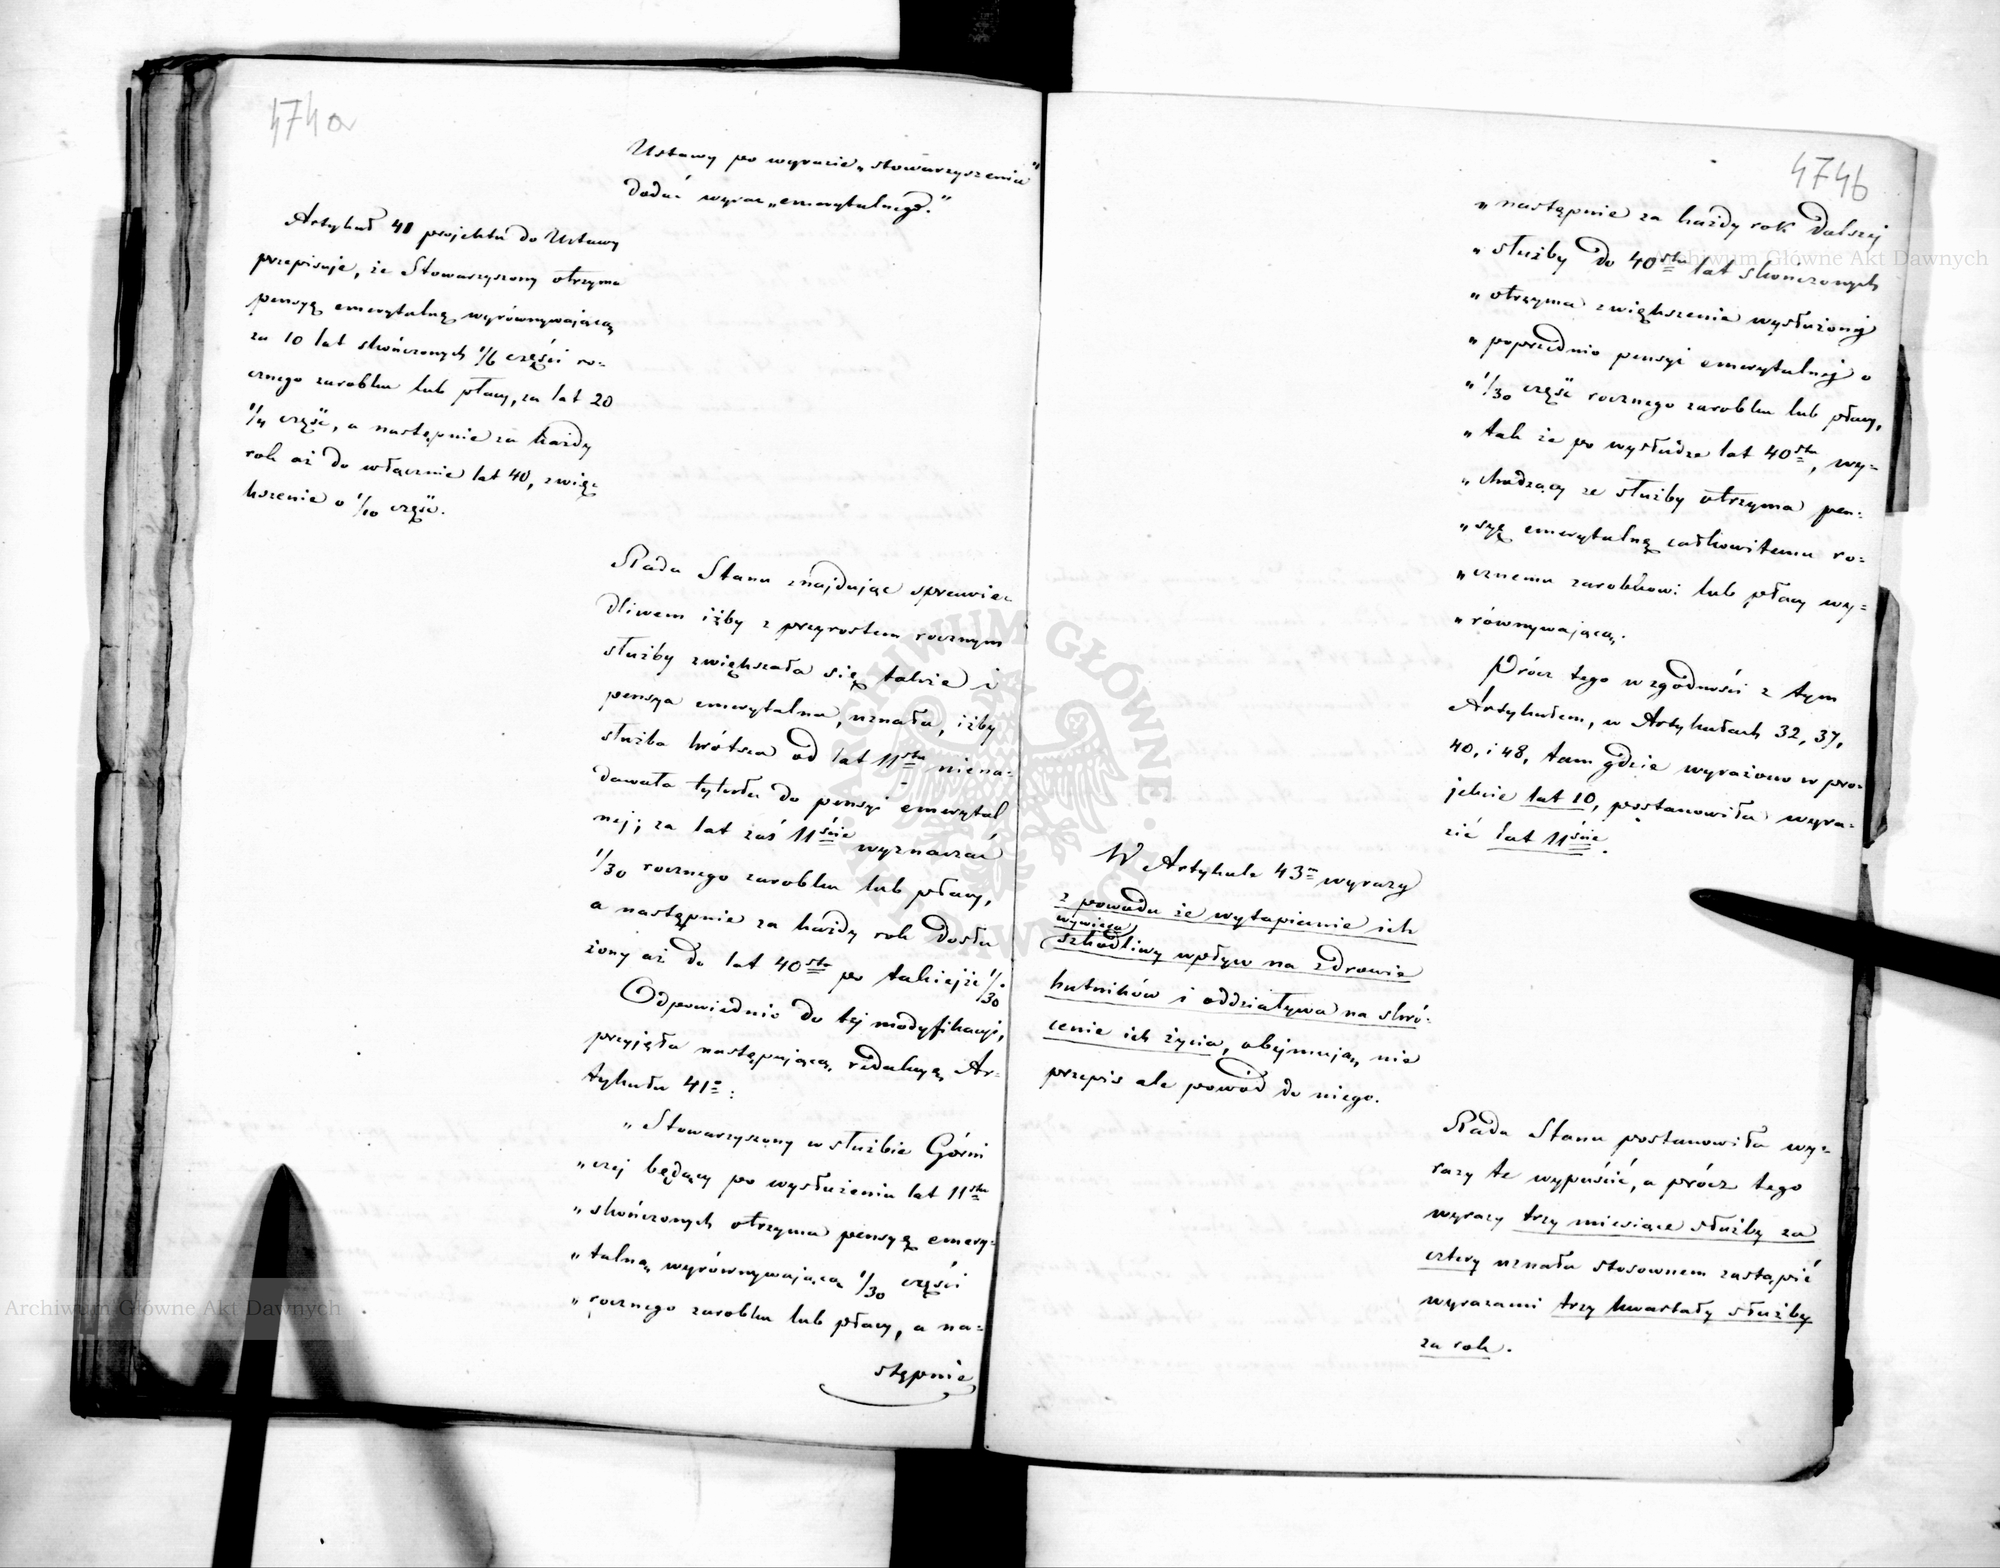 474a
Ustawy po wyrazie „stowarzyszenia"
dodać wyraz „emerytalnego."
Artykuł 41 projektu do Ustawy
przepisuje, że Stowarzyszony otrzyma
pensyę emerytalną wyrównywającą
za 10 lat skończonych 1/6 części ro-
cznego zarobku lub płacy, za lat 20
1/4 część, a następnie za każdy
rok aż do włącznie lat 40, zwię-
kszenie o 1/10 część.
Rada Stanu znajdując sprawie-
dliwem iżby z przyrostem rocznym
służby zwiększała się także i
pensya emerytalna, uznała, iżby
służba krótsza od lat 11stu niena-
dawała tytułu do pensyi emerytal
nej; za lat zaś 11ście wyznaczać
1/30 rocznego zarobku lub płacy,
a następnie za każdy rok dosłu
żony aż do lat 40stu po takiejże 1/30
Odpowiednio do tej modyfikacyi,
przyjęła następującą redakcyą Ar-
tykułu 41=:
„Stowarzyszony w służbie Górni
„czej będący po wysłużeniu lat 11stu
„skończonych otrzyma pensyę emery-
„talną wyrównywającą 1/30 części
„rocznego zarobku lub płacy, a na-
stępnie
474b
„następnie za każdy rok dalszej
„służby do 40stu lat skończonych
„otrzyma zwiększenie wysłużonej
„poprzednio pensyi emerytalnej o
„1/30 część rocznego zarobku lub płacy,
„tak że po wysłudze lat 40stu, wy-
„chodzący ze służby otrzyma pen-
„syę emerytalną całkowitemu ro-
„cznemu zarobkowi lub płacy wy-
„równywającą.
Prócz tego w zgodności z tym
Artykułem, w Artykułach 32, 37,
40, i 48, tam gdzie wyrażono w pro-
jekcie lat 10, postanowiła wyra-
zić lat 11ście.
W Artykule 43= wyrazy
z powodu że wytapianie ich
wywiera
szkodliwy wpływ na zdrowie
hutników i oddziaływa na skró-
cenie ich życia, obejmują, nie
przepis ale powód do niego.
Rada Stanu postanowiła wy-
razy te wypuścić, a prócz tego
wyrazy trzy miesiące służby za
cztery uznała stosownem zastąpić
wyrazami trzy kwartały służby
za rok.
Archiwum Główne Akt Dawnych
Archiwum Główne Akt Dawnych
ARCHIWUM GŁÓWNE AKT DAWNYCH